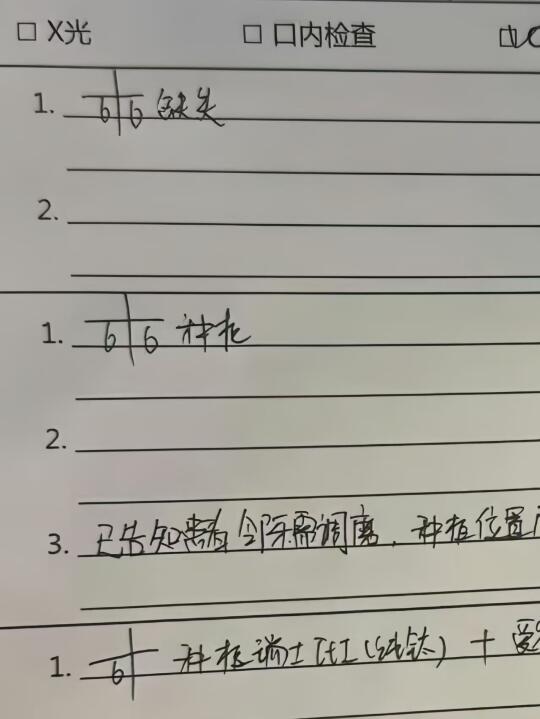 □ X光 □ 口内检查
1. 6|6 缺失
2.
1. 6|6 种植
2.
3. 已告知患者邻牙需调磨，种植位置
1. 6| 种植瑞士ITI(纯钛) +